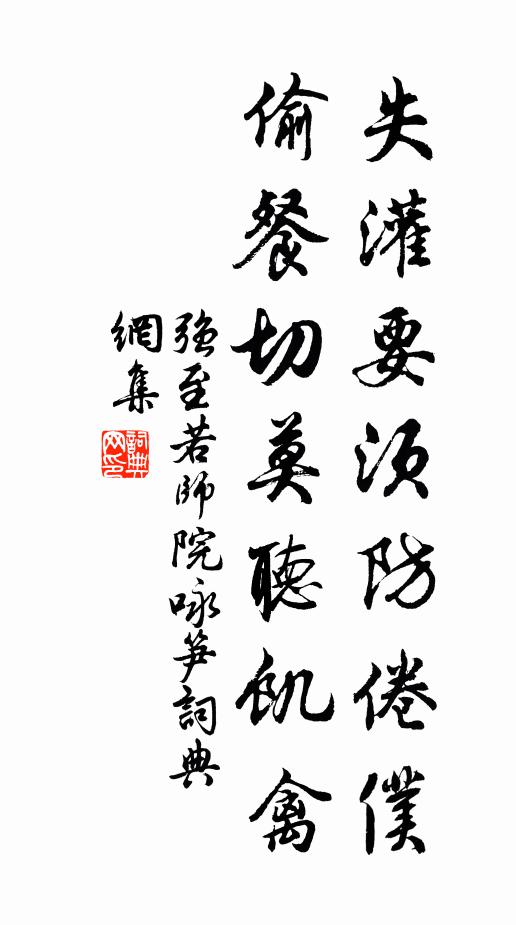 失灌要須防倦僕
偷餐切莫聽飢禽
強至若師院咏笋詞典
網集
詞典网印